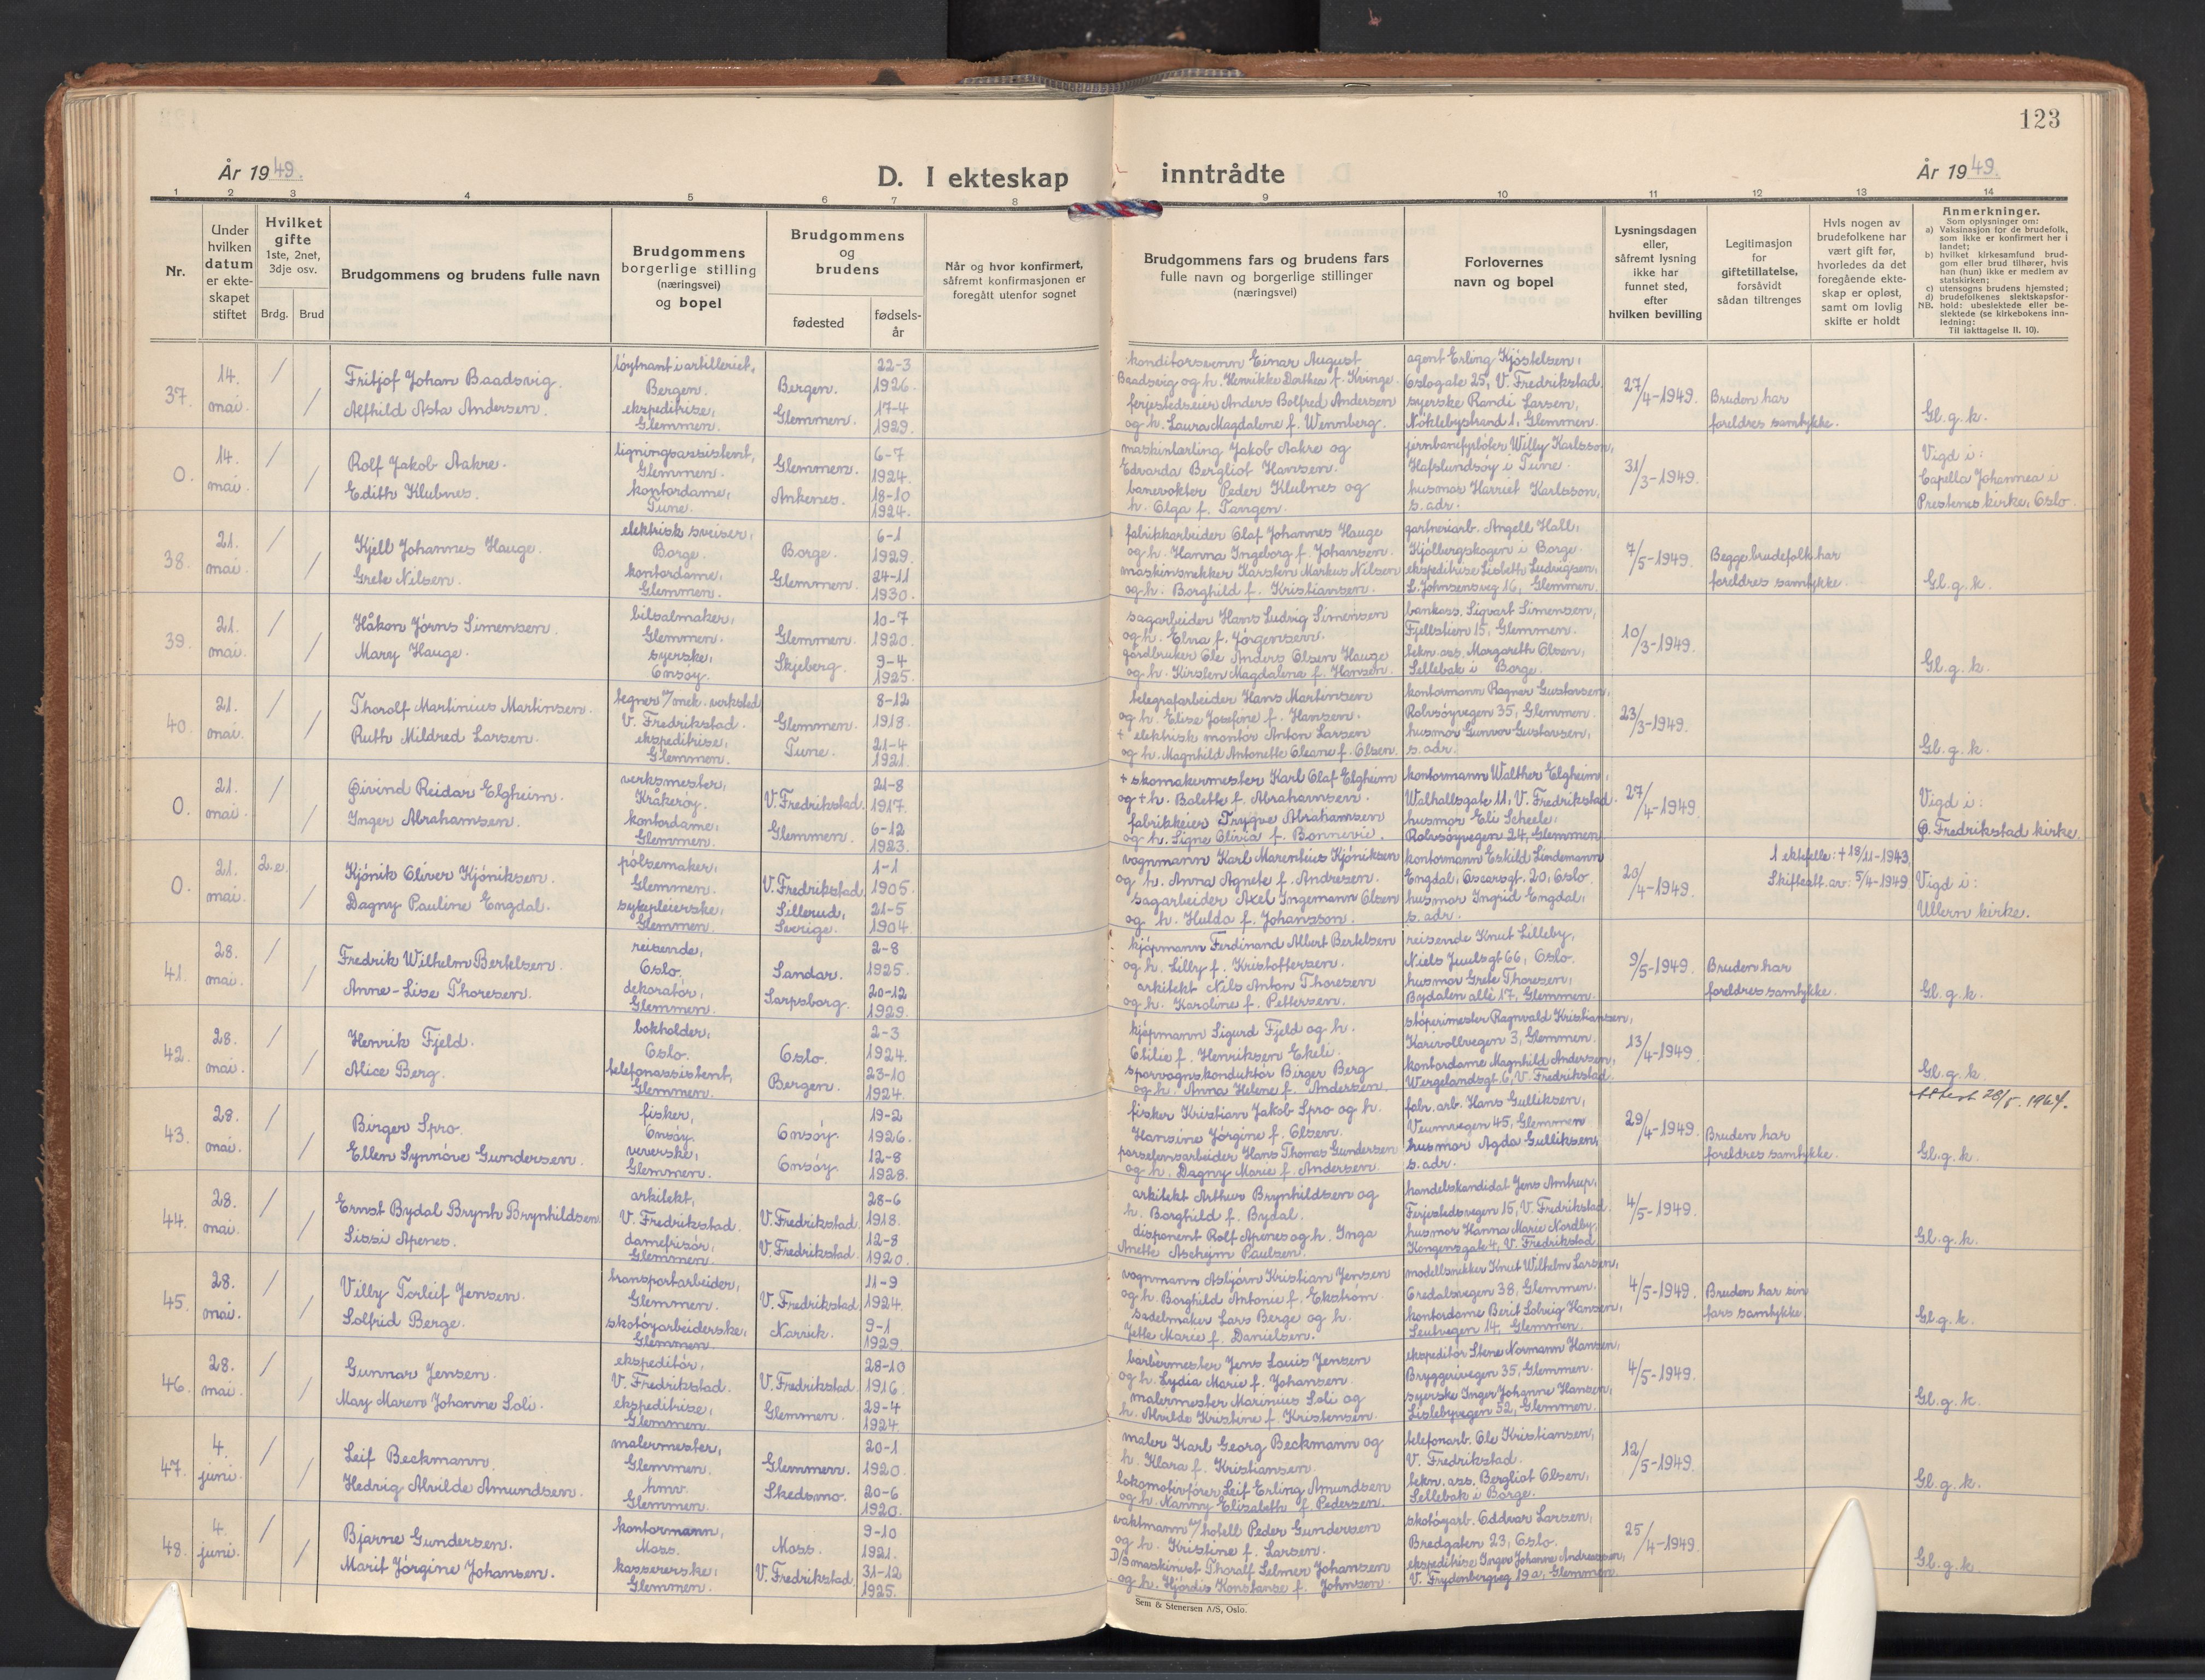 123
År 1949.
D. I ekteskap inntrådte
År 1949.
1 2 3 4 5 6 7 8 9 10 11 12 13 14
Nr.
Under hvilken datum er ekteskapet stiftet
Hvilket gifte 1ste, 2net, 3dje osv.
Brdg. Brud
Brudgommens og brudens fulle navn
Brudgommens borgerlige stilling (næringsvei) og bopel
Brudgommens og brudens
fødested
fødselsår
Når og hvor konfirmert, såfremt konfirmasjonen er foregått utenfor sognet
Brudgommens fars og brudens fars fulle navn og borgerlige stillinger (næringsvei)
Forlovernes navn og bopel
Lysningsdagen eller, såfremt lysning ikke har funnet sted, efter hvilken bevilling
Legitimasjon for giftetillatelse, forsåvidt sådan tiltrenges
Hvis nogen av brudefolkene har vært gift før, hvorledes da det foregående ekteskap er opløst, samt om lovlig skifte er holdt
Anmerkninger.
Som oplysninger om:
a) Vaksinasjon for de brudefolk, som ikke er konfirmert her i landet;
b) hvilket kirkesamfund brudgom eller brud tilhører, hvis han (hun) ikke er medlem av statskirken;
c) utensogns brudens hjemsted;
d) brudefolkenes slektskapsforhold: ubeslektede eller beslektede (se kirkebokens innledning:
NB. Til iakttagelse II. 10).
37. 14. mai. / /
Fritjof Johan Baadsvig.
Alfhild Asta Andersen.
løytnant i artilleriet, Bergen.
ekspeditrise, Glemmen.
Bergen. 22-3 1926.
Glemmen. 17-4 1929.
konditorsvenn Einar August
Baadsvig og h. Henrikke Dorthea f. Kvinge.
ferjestedseier Anders Bolfred Andersen
og h. Laura Magdalene f. Wennberg.
agent Erling Kjøstelsen,
Oslogate 25, V. Fredrikstad.
syerske Randi Larsen,
Nøklebystrand 1, Glemmen.
27/4-1949.
Bruden har foreldres samtykke.
Gl. g. k.
0. 14. mai. / /
Rolf Jakob Aakre.
Edith Klubnes.
ligningsassistent, Glemmen.
kontordame, Tune.
Glemmen. 6-7 1924.
Ankenes. 18-10 1924.
maskinlærling Jakob Aakre og
Edvarda Bergliot Hansen.
banevokter Peder Klubnes og
h. Olga f. Tangen.
jernbanefyrbøter Willy Karlsson,
Hafslundsøy i Tune.
husmor Harriet Karlsson,
s. adr.
31/3-1949.
Vigd i:
Capella Johannea i
Prestenes kirke, Oslo.
38. 21. mai. / /
Kjell Johannes Hauge.
Grete Nilsen.
elektrisk sveiser, Borge.
kontordame, Glemmen.
Borge. 6-1 1929.
Glemmen. 24-11 1930.
fabrikkarbeider Olaf Johannes Hauge
og h. Hanna Ingeborg f. Johansen.
maskinsnekker Karsten Markus Nilsen
og h. Borghild f. Kristiansen.
gartneriarb. Angell Hall,
Kjølbergskogen i Borge.
ekspeditrise Lisbeth Ludvigsen,
L. Johnsensveg 16, Glemmen.
7/5-1949.
Begge brudefolk har foreldres samtykke.
Gl. g. k.
39. 21. mai. / /
Håkon Jørns Simensen.
Mary Hauge.
bilsalmaker, Glemmen.
syerske, Onsøy.
Glemmen. 10-7 1920.
Skjeberg. 9-4 1925.
sagarbeider Hans Ludvig Simensen
og h. Elna f. Jørgensen.
gårdbruker Ole Anders Olsen Hauge
og h. Kirsten Magdalena f. Hansen.
bankass. Sigvart Simensen,
Fjellstien 15, Glemmen.
tekn. ass. Margareth Olsen,
Sellebak i Borge.
10/3-1949.
Gl. g. k.
40. 21. mai. / /
Thorolf Martinius Martinsen.
Ruth Mildred Larsen.
tegner v/mek. verksted V. Fredrikstad.
ekspeditrise, Glemmen.
Glemmen. 8-12 1918.
Tune. 21-4 1921.
telegrafarbeider Hans Martinsen
og h. Elise Josefine f. Hansen.
+ elektrisk montør Anton Larsen
og h. Magnhild Antonette Oleane f. Olsen.
kontormann Ragnar Gustavsen,
Rolvsøyvegen 35, Glemmen.
husmor Gunvor Gustavsen,
s. adr.
23/3-1949.
Gl. g. k.
0. 21. mai. / /
Øivind Reidar Elgheim.
Inger Abrahamsen.
verksmester, Kråkerøy.
kontordame, Glemmen.
V. Fredrikstad. 21-8 1917.
Glemmen. 6-12 1923.
+ skomakermester Karl Olaf Elgheim
og + h. Bolette f. Abrahamsen.
fabrikkeier Trygve Abrahamsen
og h. Signe Olivia f. Bonnevie.
kontormann Walther Elgheim,
Walhallsgate 11, V. Fredrikstad.
husmor Eli Scheele,
Rolvsøyvegen 24, Glemmen.
27/4-1949.
Vigd i:
Ø. Fredrikstad kirke.
0. 21. mai. 2.e. /
Kjønik Oliver Kjøniksen.
Dagny Pauline Engdal.
pølsemaker, Glemmen.
sykepleierske, Glemmen.
V. Fredrikstad. 1-1 1905.
Sillerud, Sverige. 21-5 1904.
vognmann Karl Marentius Kjøniksen
og h. Anna Agnete f. Andresen.
sagarbeider Axel Ingemann Olsen
og h. Hulda f. Johansson.
kontormann Eskild Lindemann
Engdal, Oscarsgt. 20, Oslo.
husmor Ingrid Engdal,
s. adr.
20/4-1949.
1 ektefelle: + 18/11-1943.
Skifteatt. av: 5/4-1949
Vigd i:
Ullern kirke.
41. 28. mai. / /
Fredrik Wilhelm Bertelsen.
Anne-Lise Thoresen.
reisende, Oslo.
dekoratør, Glemmen.
Sandar. 2-8 1925.
Sarpsborg. 20-12 1929.
kjøpmann Ferdinand Albert Bertelsen
og h. Lilly f. Kristoffersen.
arkitekt Nils Anton Thoresen
og h. Karoline f. Pettersen.
reisende Knut Lilleby,
Niels Juulsgt 66, Oslo.
husmor Grete Thoresen,
Bydalen allé 17, Glemmen.
9/5-1949.
Bruden har foreldres samtykke.
Gl. g. k.
42. 28. mai. / /
Henrik Fjeld.
Alice Berg.
bokholder, Oslo.
telefonassistent, Glemmen.
Oslo. 2-3 1924.
Bergen. 23-10 1924.
kjøpmann Sigurd Fjeld og h.
Otilie f. Henriksen Ekeli.
sporvognskonduktør Birger Berg
og h. Anna Helene f. Andersen.
støperimester Ragnvald Kristiansen,
Karivollvegen 3, Glemmen.
kontordame Magnhild Andersen,
Wergelandsgt 6, V. Fredrikstad.
13/4-1949.
Gl. g. k.
43. 28. mai. / /
Birger Spro.
Ellen Synnøve Gundersen.
fisker, Onsøy.
veverske, Glemmen.
Onsøy. 19-2 1926.
Onsøy. 12-8 1928.
fisker Kristian Jakob Spro og h.
Hansine Jørgine f. Olsen.
porselensarbeider Hans Thomas Gundersen
og h. Dagny Marie f. Andersen.
fabr. arb. Hans Gulliksen,
Veumvegen 45, Glemmen
husmor Agda Gulliksen,
s. adr.
29/4-1949.
Bruden har foreldres samtykke.
Attest 28/5. 1964.
Gl. g. k.
44. 28. mai. / /
Ernst Bydal Brynh Brynhildsen
Sissi Apenes.
arkitekt, V. Fredrikstad.
damefrisør, Glemmen.
V. Fredrikstad. 28-6 1918.
V. Fredrikstad. 12-8 1920.
arkitekt Arthur Brynhildsen og
h. Borghild f. Bydal.
disponent Rolf Apenes og h. Inga
Anette Ascheim Paulsen.
handelskandidat Jens Amtrup,
Ferjestedsvegen 15, V. Fredrikstad.
husmor Hanna Marie Nordby,
Kongensgate 4, V. Fredrikstad.
4/5-1949.
Gl. g. k.
45. 28. mai. / /
Villy Torleif Jensen.
Solfrid Berge.
transportarbeider, Glemmen.
skotøyarbeiderske, Glemmen.
V. Fredrikstad. 11-9 1924.
Narvik. 9-1 1929.
vognmann Asbjørn Kristian Jensen
og h. Borghild Antonie f. Ekstrøm.
sadelmaker Lars Berge og h.
Jette Marie f. Danielsen.
modellsnekker Knut Wilhelm Larsen,
Oredalsvegen 38, Glemmen.
kontordame Berit Solveig Hansen,
Seutvegen 14, Glemmen.
4/5-1949.
Bruden har sin fars samtykke.
Gl. g. k.
46. 28. mai. / /
Gunnar Jensen.
May Maren Johanne Soli.
ekspeditør, V. Fredrikstad.
ekspeditrise, Glemmen.
V. Fredrikstad. 28-10 1916.
Glemmen. 29-4 1924.
barbermester Jens Louis Jensen
og h. Lydia Marie f. Johansen.
malermester Marinius Soli og
h. Alvilde Kristine f. Kristensen.
ekspeditør Stene Normann Hansen,
Bryggerivegen 35, Glemmen.
syerske Inger Johanne Hansen,
Lislebyvegen 52, Glemmen.
4/5-1949.
Gl. g. k.
47. 4. juni. / /
Leif Beckmann.
Hedvig Alvilde Amundsen.
malermester, Glemmen.
hmv. Glemmen.
Glemmen. 20-1 1920.
Skedsmo. 20-6 1920.
maler Karl Georg Beckmann og
h. Klara f. Kristiansen.
lokomotivfører Leif Erling Amundsen
og h. Nanny Elisabeth f. Pedersen.
telefonarb. Ole Kristiansen,
V. Fredrikstad.
tekn. ass. Bergliot Olsen,
Sellebak i Borge.
12/5-1949.
Gl. g. k.
48. 4. juni. / /
Bjarne Gundersen.
Marit Jørgine Johansen.
kontormann, Moss.
kassererske, Glemmen.
Moss. 9-10 1921.
V. Fredrikstad. 31-12 1925.
vaktmann v/hotell Peder Gundersen
og h. Kristine f. Larsen.
D/S maskinist Thoralf Selmer Johansen
og h. Hjørdis Konstanse f. Johnsen.
skotøyarb. Oddvar Larsen,
Bredgaten 23, Oslo.
ekspeditrise Inger Johanne Andreassen,
V. Frydenbergveg 19a, Glemmen.
25/4-1949.
Gl. g. k.
Sem & Stenersen A/S, Oslo.